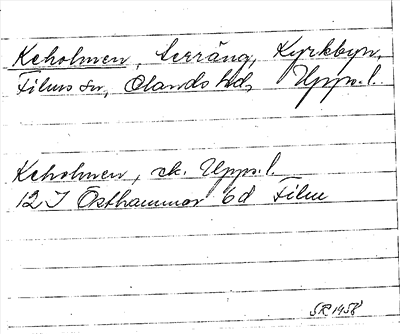 Keholmen, terräng, Kyrkbyn,
Films sn, Olands hd, Upps. l.
Keholmen, ek. Upps. l.
12 I Östhammar 6d Film
SR 1958